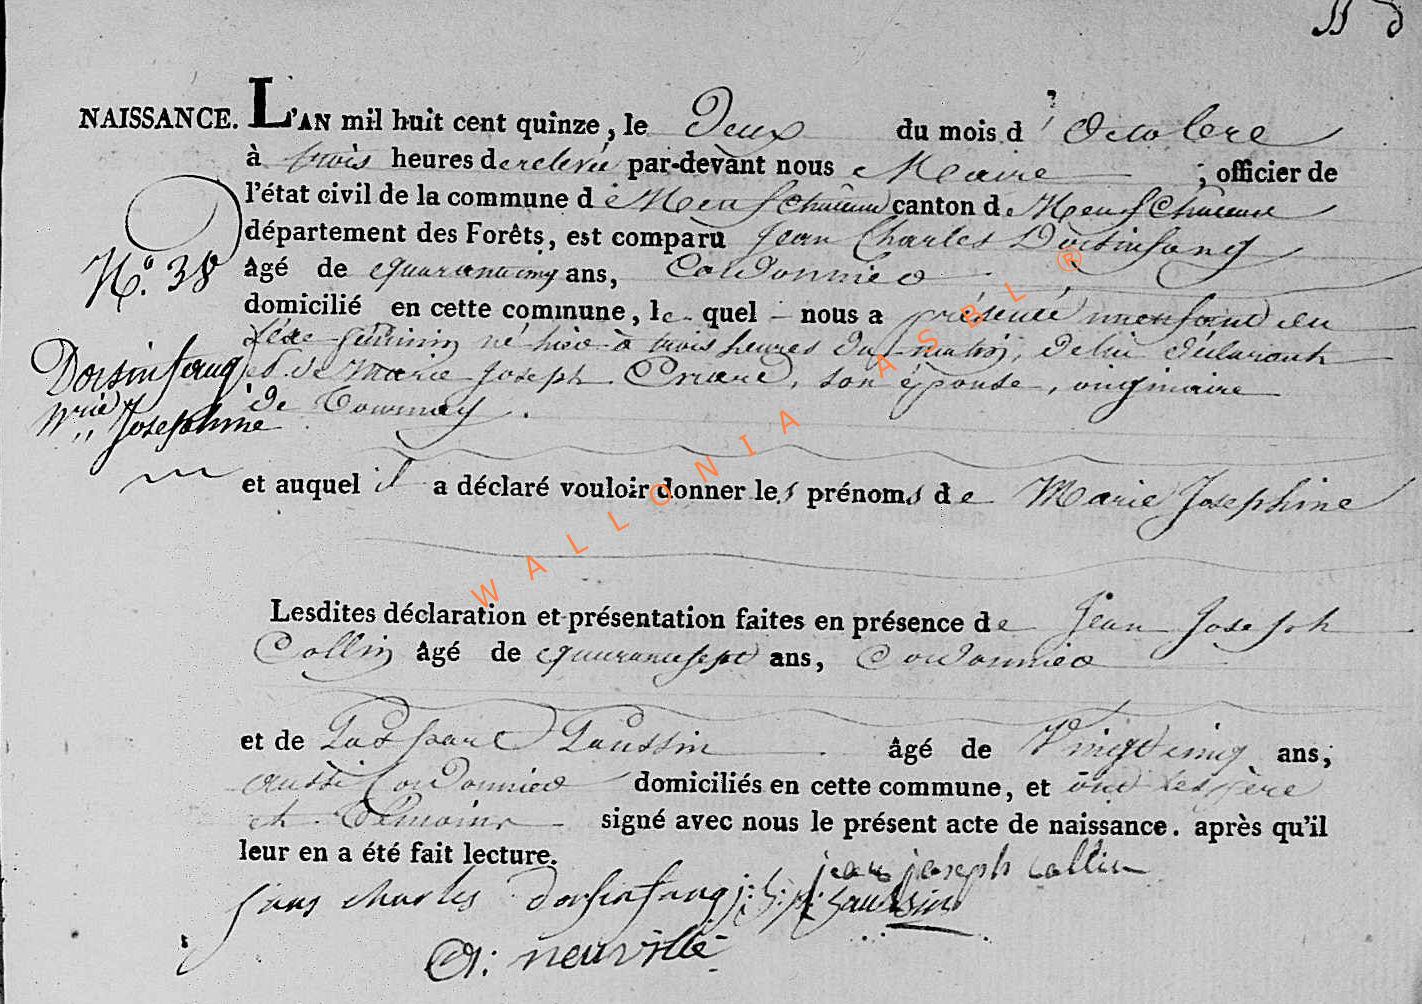 NAISSANCE. L'AN mil huit cent quinze, le Deux du mois d' Octobre
à trois heures de relevée par-devant nous Maire ; officier de
l'état civil de la commune de Neufchateau canton de Neufchateau
département des Forêts, est comparu Jean Charles Dorsinfang
N.° 38
âgé de quarantecinq ans, Cordonnier
domicilié en cette commune, lequel nous a présenté un enfant du
Sexe féminin né hier à trois heures du matin, de lui déclarant
Dorsinfang
et de Marie Joseph son épouse, originaire
de Tournay.
M.rie Josephine
et auquel il a déclaré vouloir donner les prénoms de Marie Josephine
Lesdites déclaration et présentation faites en présence de Jean Joseph
Collin âgé de quarantesept ans, Cordonnier
et de âgé de Vingtcinq ans,
aussi Cordonnier domiciliés en cette commune, et ont les père
et témoins signé avec nous le présent acte de naissance. après qu'il
leur en a été fait lecture.
jean joseph collin
jean charles dorsinfang
neuville
WALLONIA ASBL ®